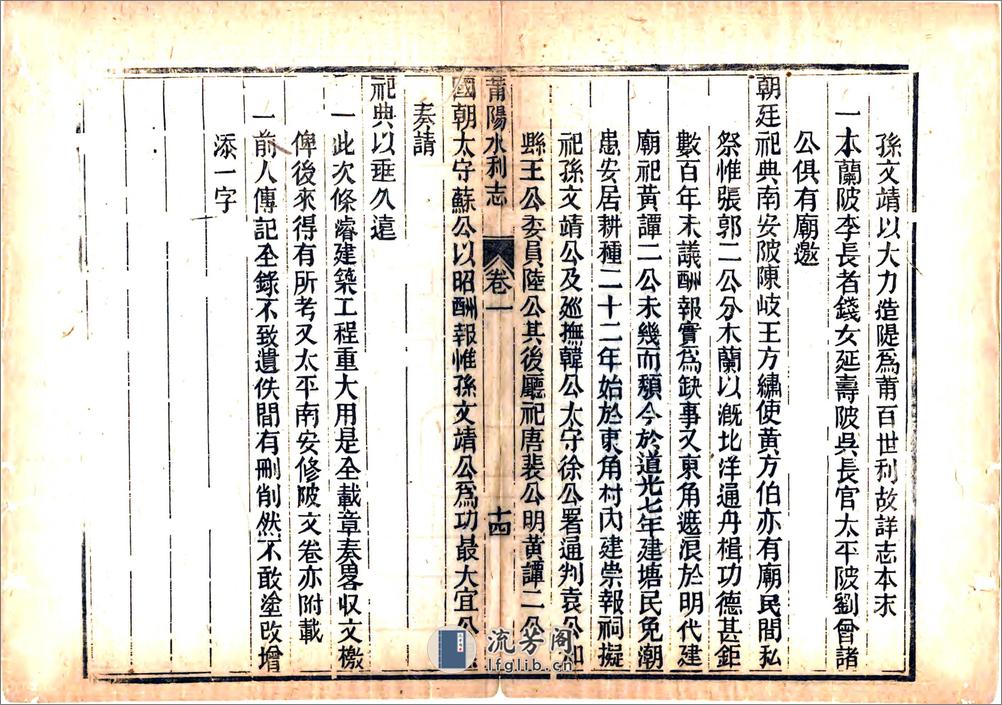 孫文靖以大力造隄爲莆百世利故詳志本末
一本蘭陂李長者錢女延壽陂吳長官太平陂劉曾諸
公俱有廟邀
朝廷祀典南安陂陳岐王方繡使黃方伯亦有廟民間私
祭惟張郭二公分木蘭以漑北洋通舟楫功德甚鉅
數百年未議酬報實爲缺事又東角遮浪於明代建
廟祀黃譚二公未幾而頽今於道光七年建塘民免潮
患安居耕種二十二年始於東角村內建崇報祠擬
祀孫文靖公及廵撫韓公太守徐公署通判袁公知
縣王公委員陸公其後廳祀唐裴公明黃譚二公
莆陽水利志 卷一 十四
國朝太守蘇公以昭酬報惟孫文靖公爲功最大宜公
奏請
祀典以垂久遠
一此次條濬建築工程重大用是全載章奏畧収文檄
俾後來得有所考又太平南安修陂文卷亦附載
一前人傳記全錄不致遺佚間有刪削然不敢塗改增
添一字
流芳阁
lfglib.cn